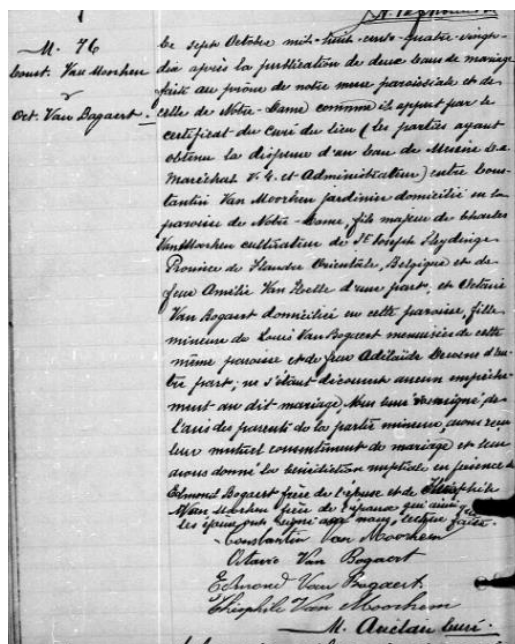 M. 76
Const. Van Moorhem
&
Oct. Van Bogaert
Le sept Octobre mil-huit-cents-quatre-vingt-
dix après la publication de deux bans de mariage
faite au prône de notre messe paroissiale et de
celle de Notre-Dame comme il appert par le
certificat du Curé du lieu (les parties ayant
obtenu la dispense d'un ban de Messire
Maréchal V. G. et Administrateur) entre Cons-
tantin Van Moorhem jardinier domicilié en la
paroisse de Notre-Dame, fils majeur de Charles
Van Moorhem cultivateur de St Joseph Sleydinge
Province de Flandre Orientale, Belgique et de
feue Amélie Van Hoelle d'une part; et Octavie
Van Bogaert domiciliée en cette paroisse, fille
mineure de Louis Van Bogaert menuisier de cette
même paroisse et de feue Adélaïde d'au-
tre part; ne s'étant découvert aucun empêche-
ment au dit mariage, Nous curé soussigné, de
l'avis des parents de la partie mineure, avons reçu
leur mutuel consentement de mariage et leur
avons donné la bénédiction nuptiale en présence de
Edmond Bogaert frère de l'épouse et de Théophile
Van Moorhem frère de l'époux qui ainsi que
les époux ont signé avec nous, lecture faite.
Constantin Van Moorhem
Octavie Van Bogaert
Edmond Van Bogaert
Théophile Van Moorhem
M. Auclair Curé.